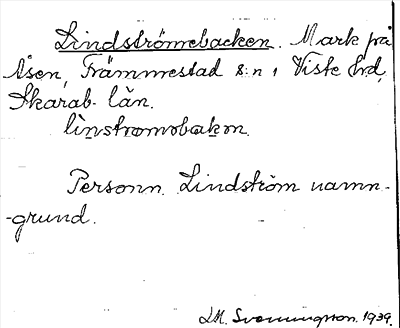 Lindströmsbacken. Mark på
Åsen, Främmestad s:n, Viste hd,
Skarab. län.
linstromsbakɘn.
Personn. Lindström namn-
-grund.
J.M. Svenningsson. 1939.